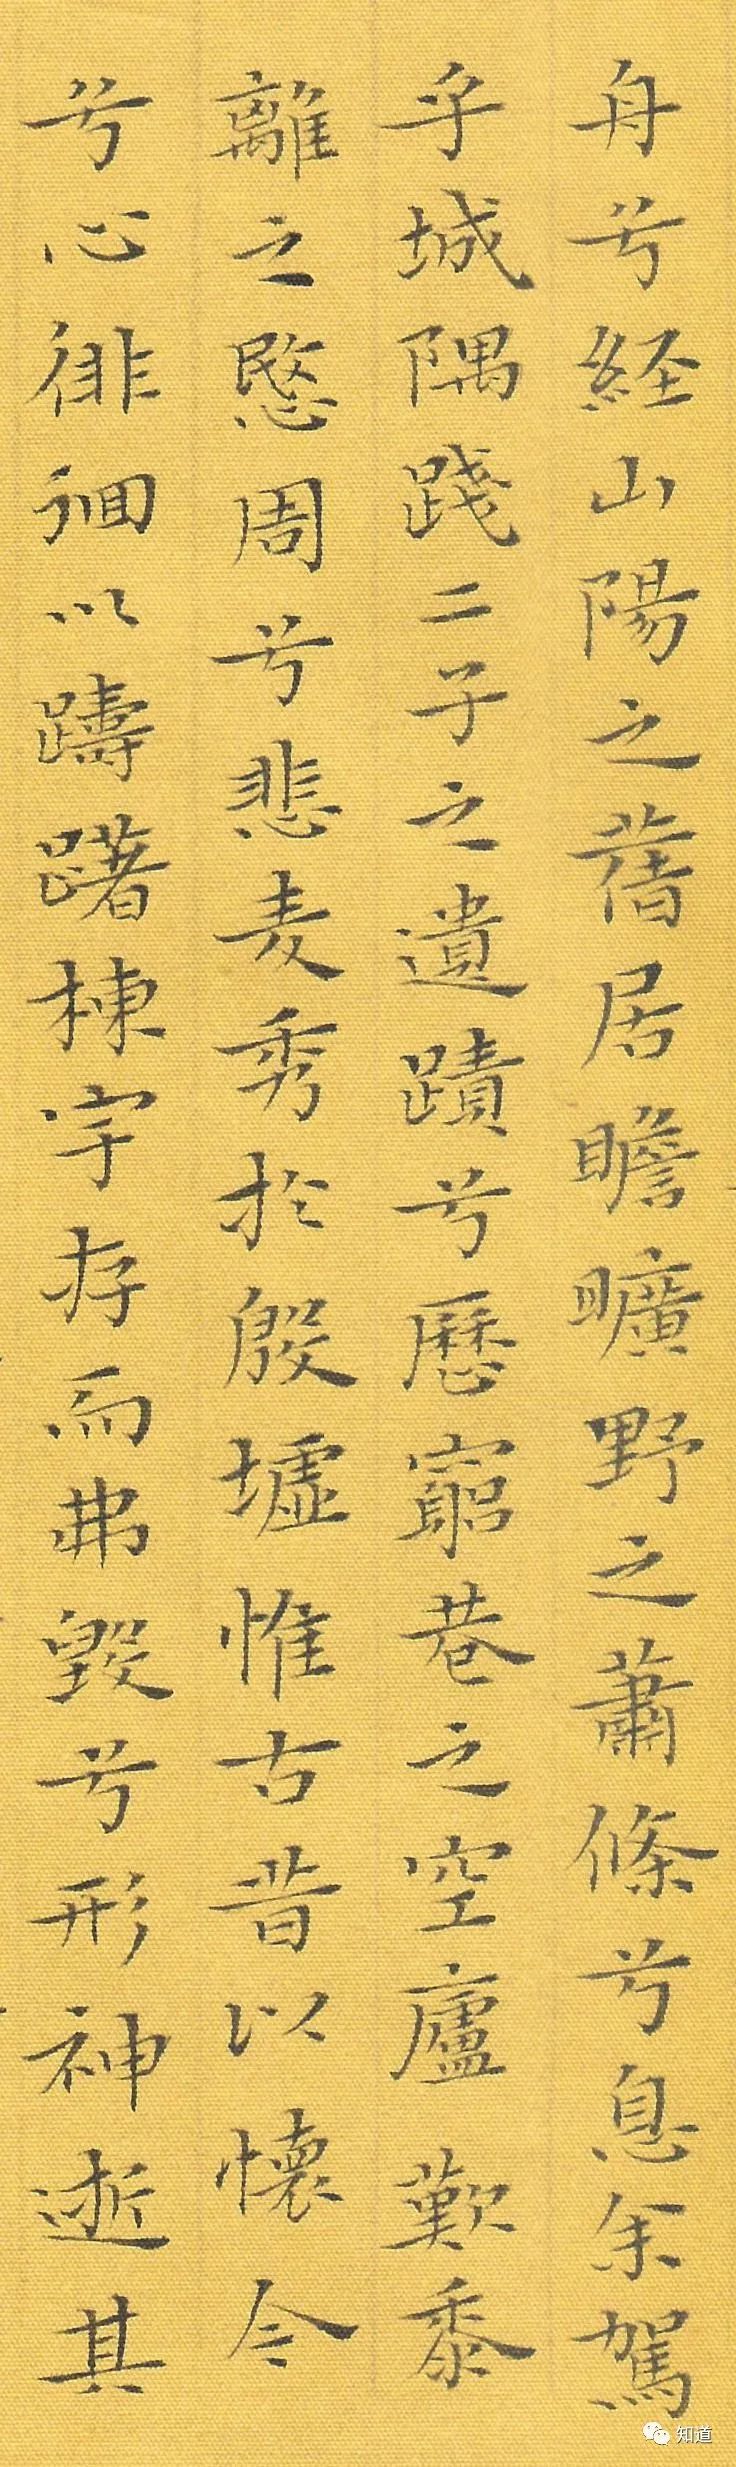 舟兮経山陽之舊居瞻曠野之蕭條兮息余駕
乎城隅踐二子之遺蹟兮歷窮巷之空廬歎黍
離之愍周兮悲麦秀於殷墟惟古昔以懷今
兮心徘徊以躊躇棟宇存而弗毀兮形神逝其
知道